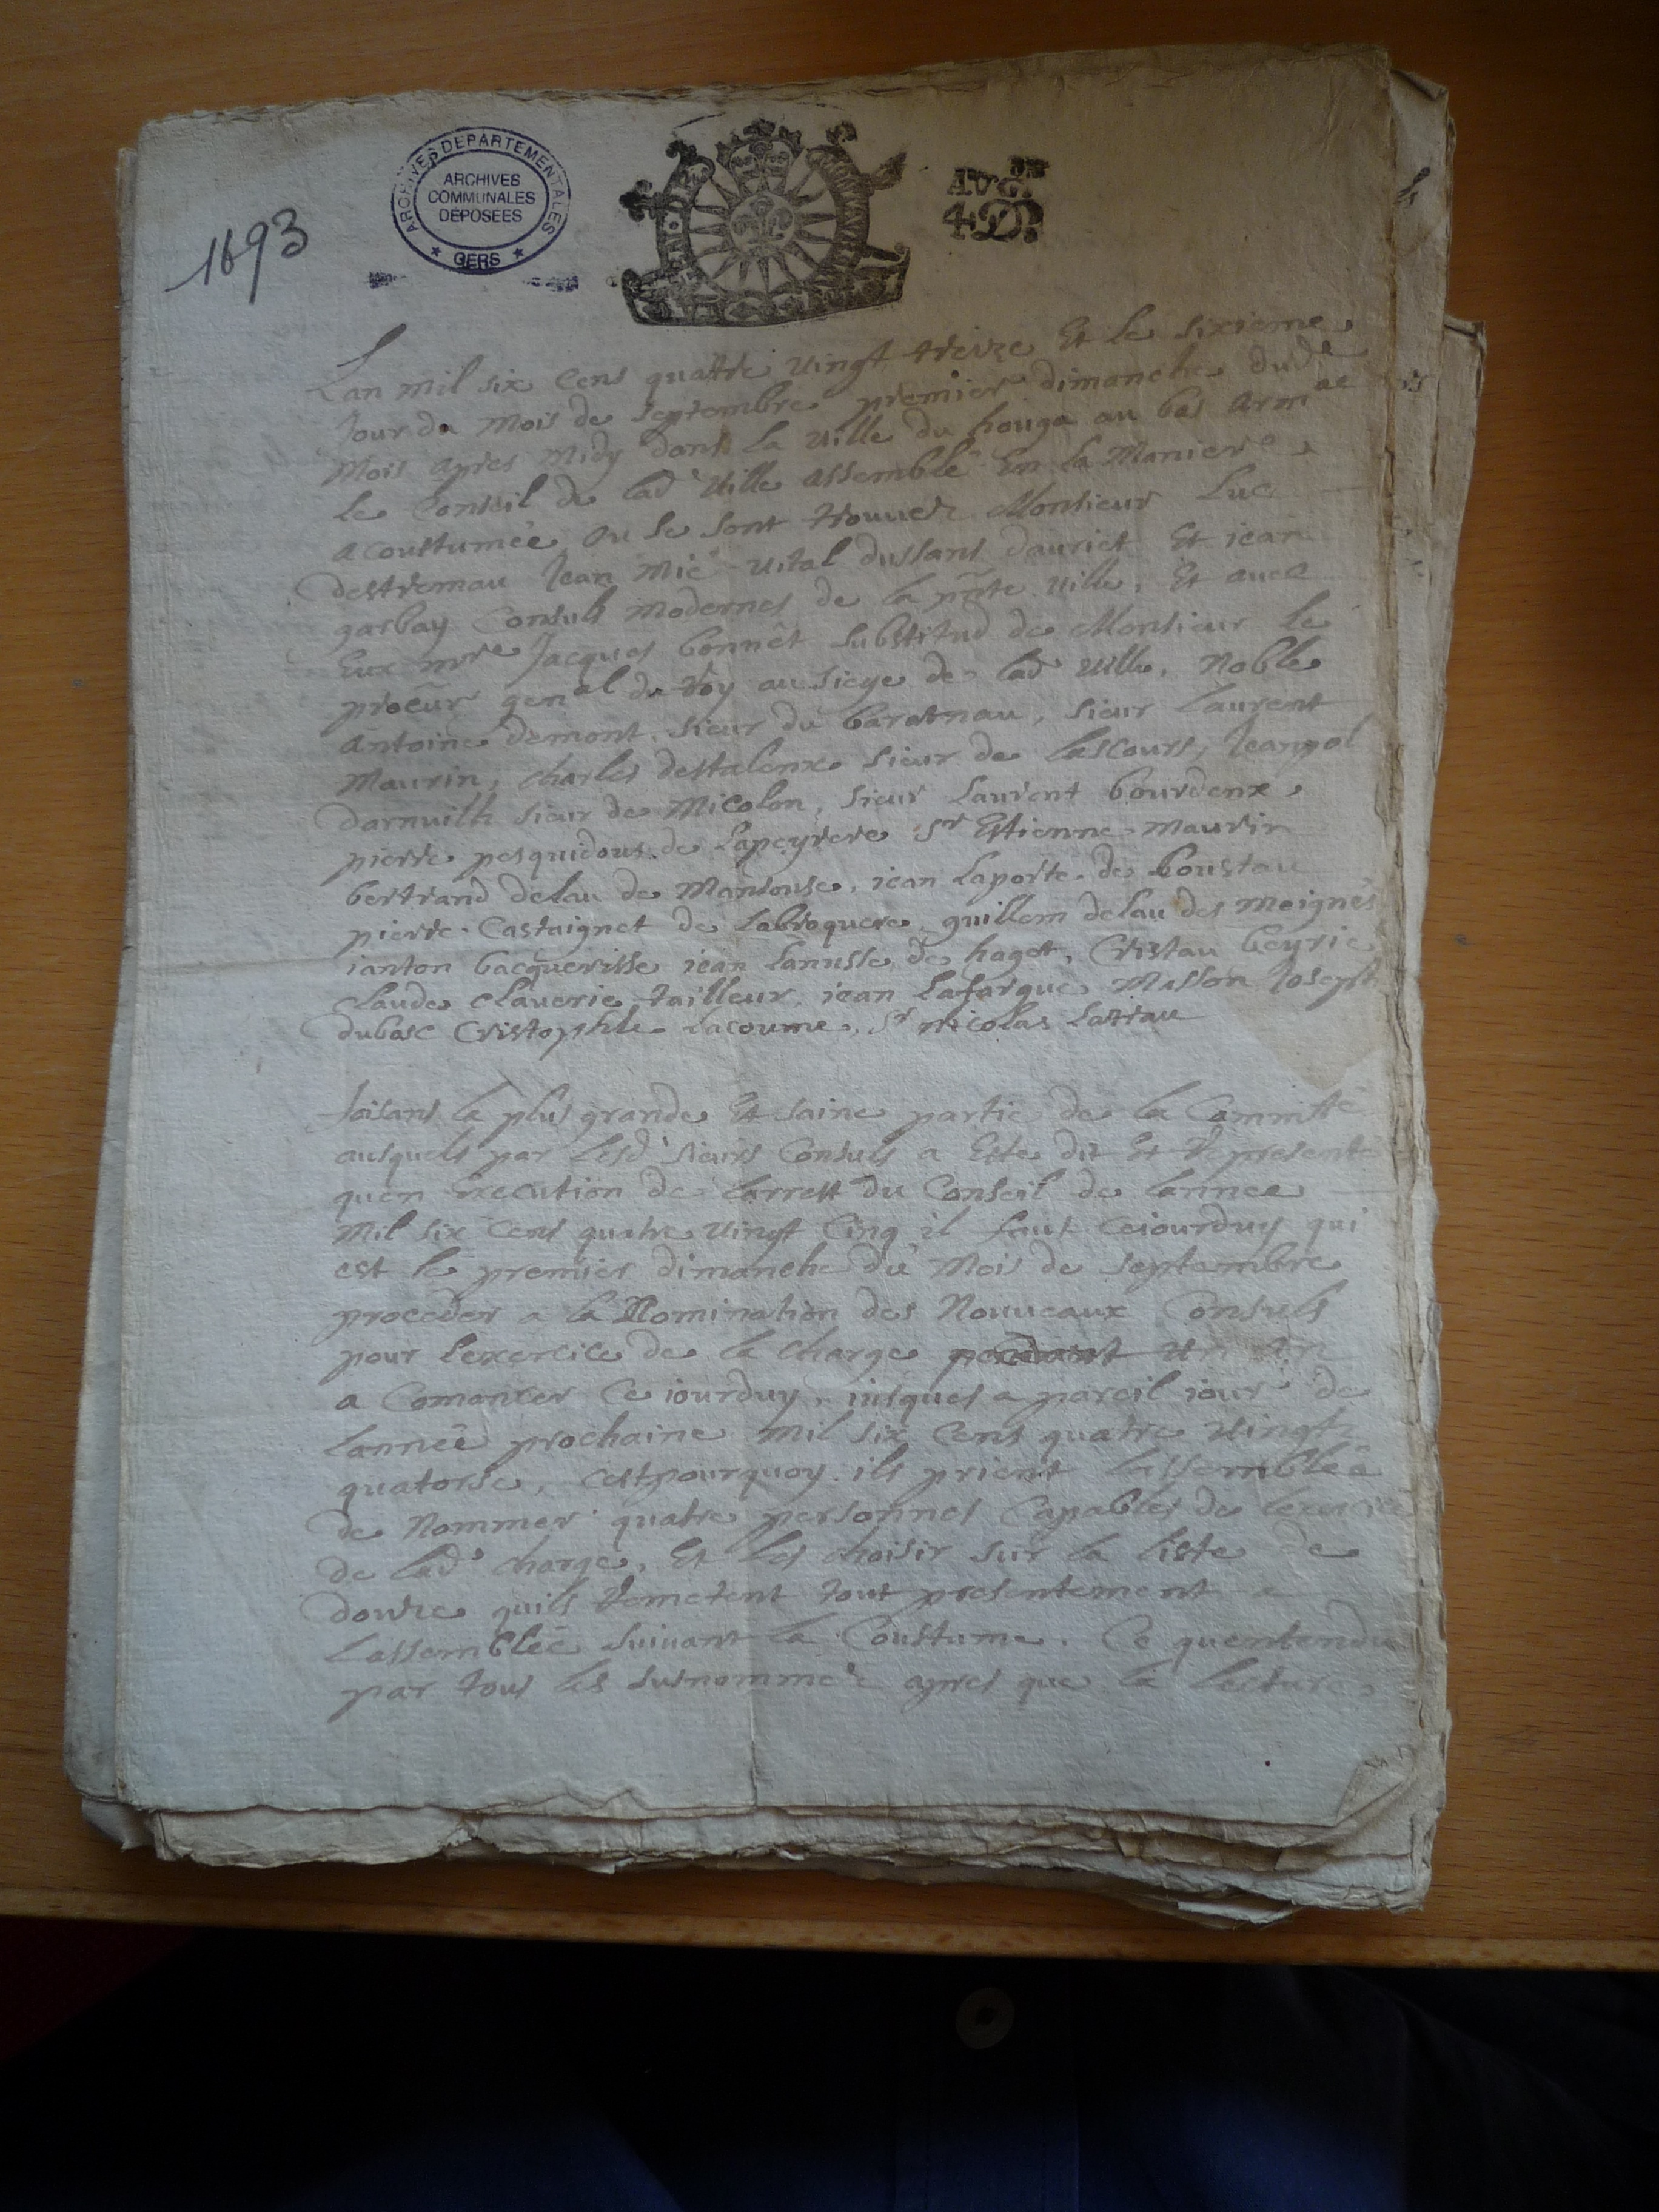 1693
ARCHIVES DEPARTEMENTALES
ARCHIVES
COMMUNALES
DÉPOSÉES
GERS
AUG.on
4D.
Lan mil six cens quattre vingt treize Et le sixieme
Jour du mois de septembre premier dimanche dud.
mois apres midy dans la ville du houga au bas arm.ac
le Conseil de lad ville assemblé En la maniere
acoustumée ou se sont trouvez Monsieur Luc
destremau Jean Mic vital dussans dauriet Et jean
garbay Consuls modernes de la pñte ville, Et avec
Eux mre Jacques bonnêt substitud de Monsieur le
proceur genal du Roy au siege de lad ville, Noble
Antoine demont sieur du baratnau, sieur laurent
Maurin, charles destalenx sieur de lascours, Jeanpol
darnuilh sieur de Micolon, sieur laurent bourdenx
pierre pesquidous de lapeyrere sr Estienne maurin
bertrand delau de mandouse, jean laporte de boustau
pierre Castaignet de labroquere guillem delau des meignes
janton bacquerisse jean lanusse de hagot, Cristau beyrie
claude claverie tailleur, jean lafargue masson Joseph
dubasc Cristophle lacoume, sr nicolas lattau
faisans la plus grande Et saine partie de la Commté
ausquels par lesd sieurs Consuls a Este dit Et representé
quen Execution de larrest du Conseil de lannee
mil six cens quatre vingt cinq il faut cejourduy qui
est le premier dimanche du mois de septembre
proceder a la Nomination des Nouveaux Consuls
pour lexercice de la charge pendant un an
a Comancer Ce jourduy, jusques a pareil jour de
lannée prochaine mil six cens quatre vingts
quatorse, cestpourquoy ils prient lassemblée
de nommer quatre personnes Capables de lexercice
de lad charge, Et les choisir sur la liste de
douze quils remetent tout presentement a
lassemblée suivant la Coustume. Ce quentendu
par tous les susnommez apres que la lecture